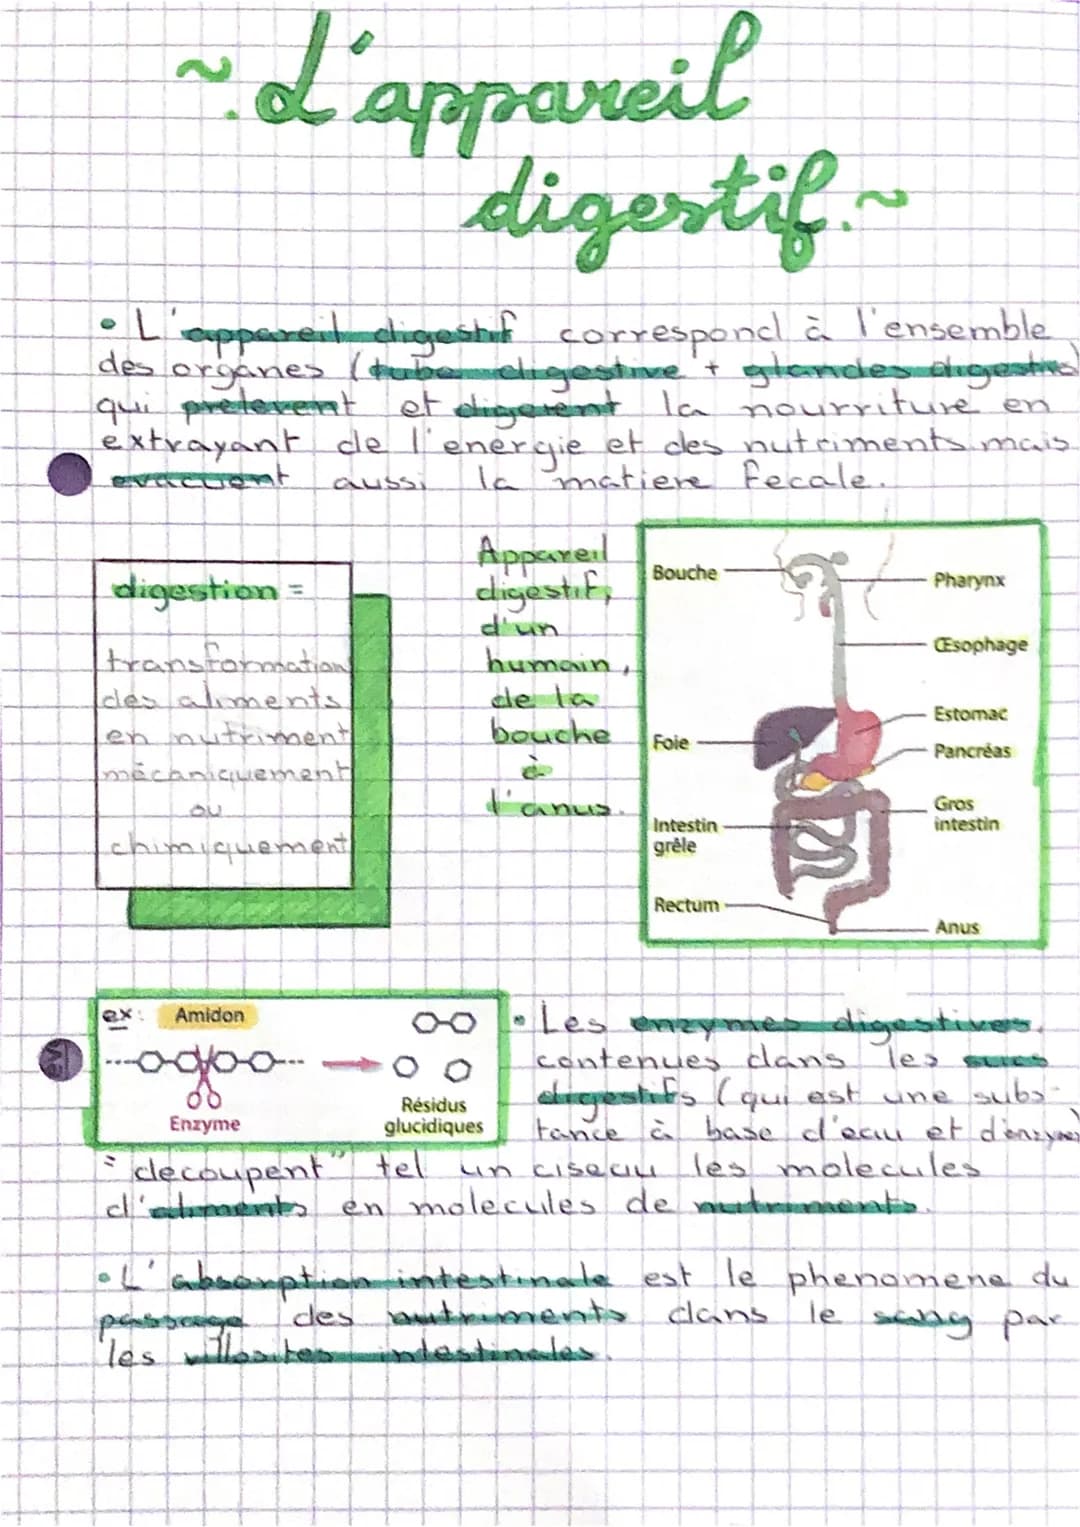 ~.L'appareil
digestif.~
• L'appareil digestif correspond à l'ensemble
des organes (tube digestive + glandes digestive)
qui prelevent et digerent la nourriture en
extrayant de l'energie et des nutriments mais
evacuent aussi la matiere fecale.
digestion =
transformation
des aliments
en nutriment
mécaniquement
ou
chimiquement
Appareil
digestif,
d'un
humain,
de la
bouche
à
l'anus.
Bouche
Pharynx
Œsophage
Estomac
Foie
Pancréas
Gros
intestin
Intestin
grêle
Rectum
Anus
ex: Amidon
Enzyme
Résidus
glucidiques
• Les enzymes digestives,
contenues dans les sucs
digestifs (qui est une subs-
tance à base d'eau et d'enzyme)
"decoupent" tel un ciseau les molecules
d'aliments en molecules de nutriments.
• L'absorption intestinale est le phenomene du
passage des nutriments dans le sang par
les villosites intestinales.